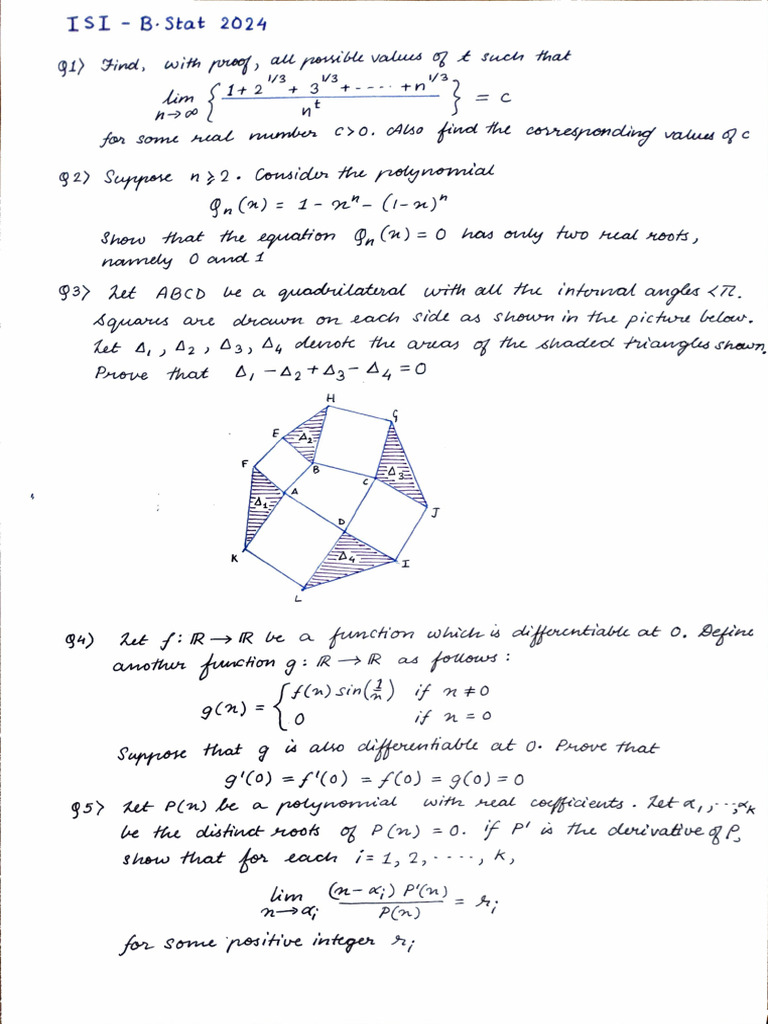 ISI - B.Stat 2024
Q1) Find, with proof, all possible values of t such that
lim n→∞ { (1 + 2^{1/3} + 3^{1/3} + ---- + n^{1/3}) / n^t } = c
for some real number c>0. Also find the corresponding values of c
Q2) Suppose n ≥ 2. Consider the polynomial
Q_n(x) = 1 - x^n - (1-x)^n
Show that the equation Q_n(x) = 0 has only two real roots,
namely 0 and 1
Q3) Let ABCD be a quadrilateral with all the internal angles < π.
Squares are drawn on each side as shown in the picture below.
Let Δ₁, Δ₂, Δ₃, Δ₄ denote the areas of the shaded triangles shown.
Prove that Δ₁ - Δ₂ + Δ₃ - Δ₄ = 0
H
G
E
Δ₂
B
F
C
Δ₃
A
Δ₁
J
D
K
Δ₄
I
L
Q4) Let f: ℝ → ℝ be a function which is differentiable at 0. Define
another function g: ℝ → ℝ as follows:
g(x) = { f(x) sin(1/x) if x ≠ 0
0 if x = 0
Suppose that g is also differentiable at 0. Prove that
g'(0) = f'(0) = f(0) = g(0) = 0
Q5) Let P(x) be a polynomial with real coefficients. Let α₁, ..., α_k
be the distinct roots of P(x) = 0. if P' is the derivative of P,
show that for each i = 1, 2, ----, k,
lim x→α_i (x - α_i) P'(x) / P(x) = r_i
for some positive integer r_i